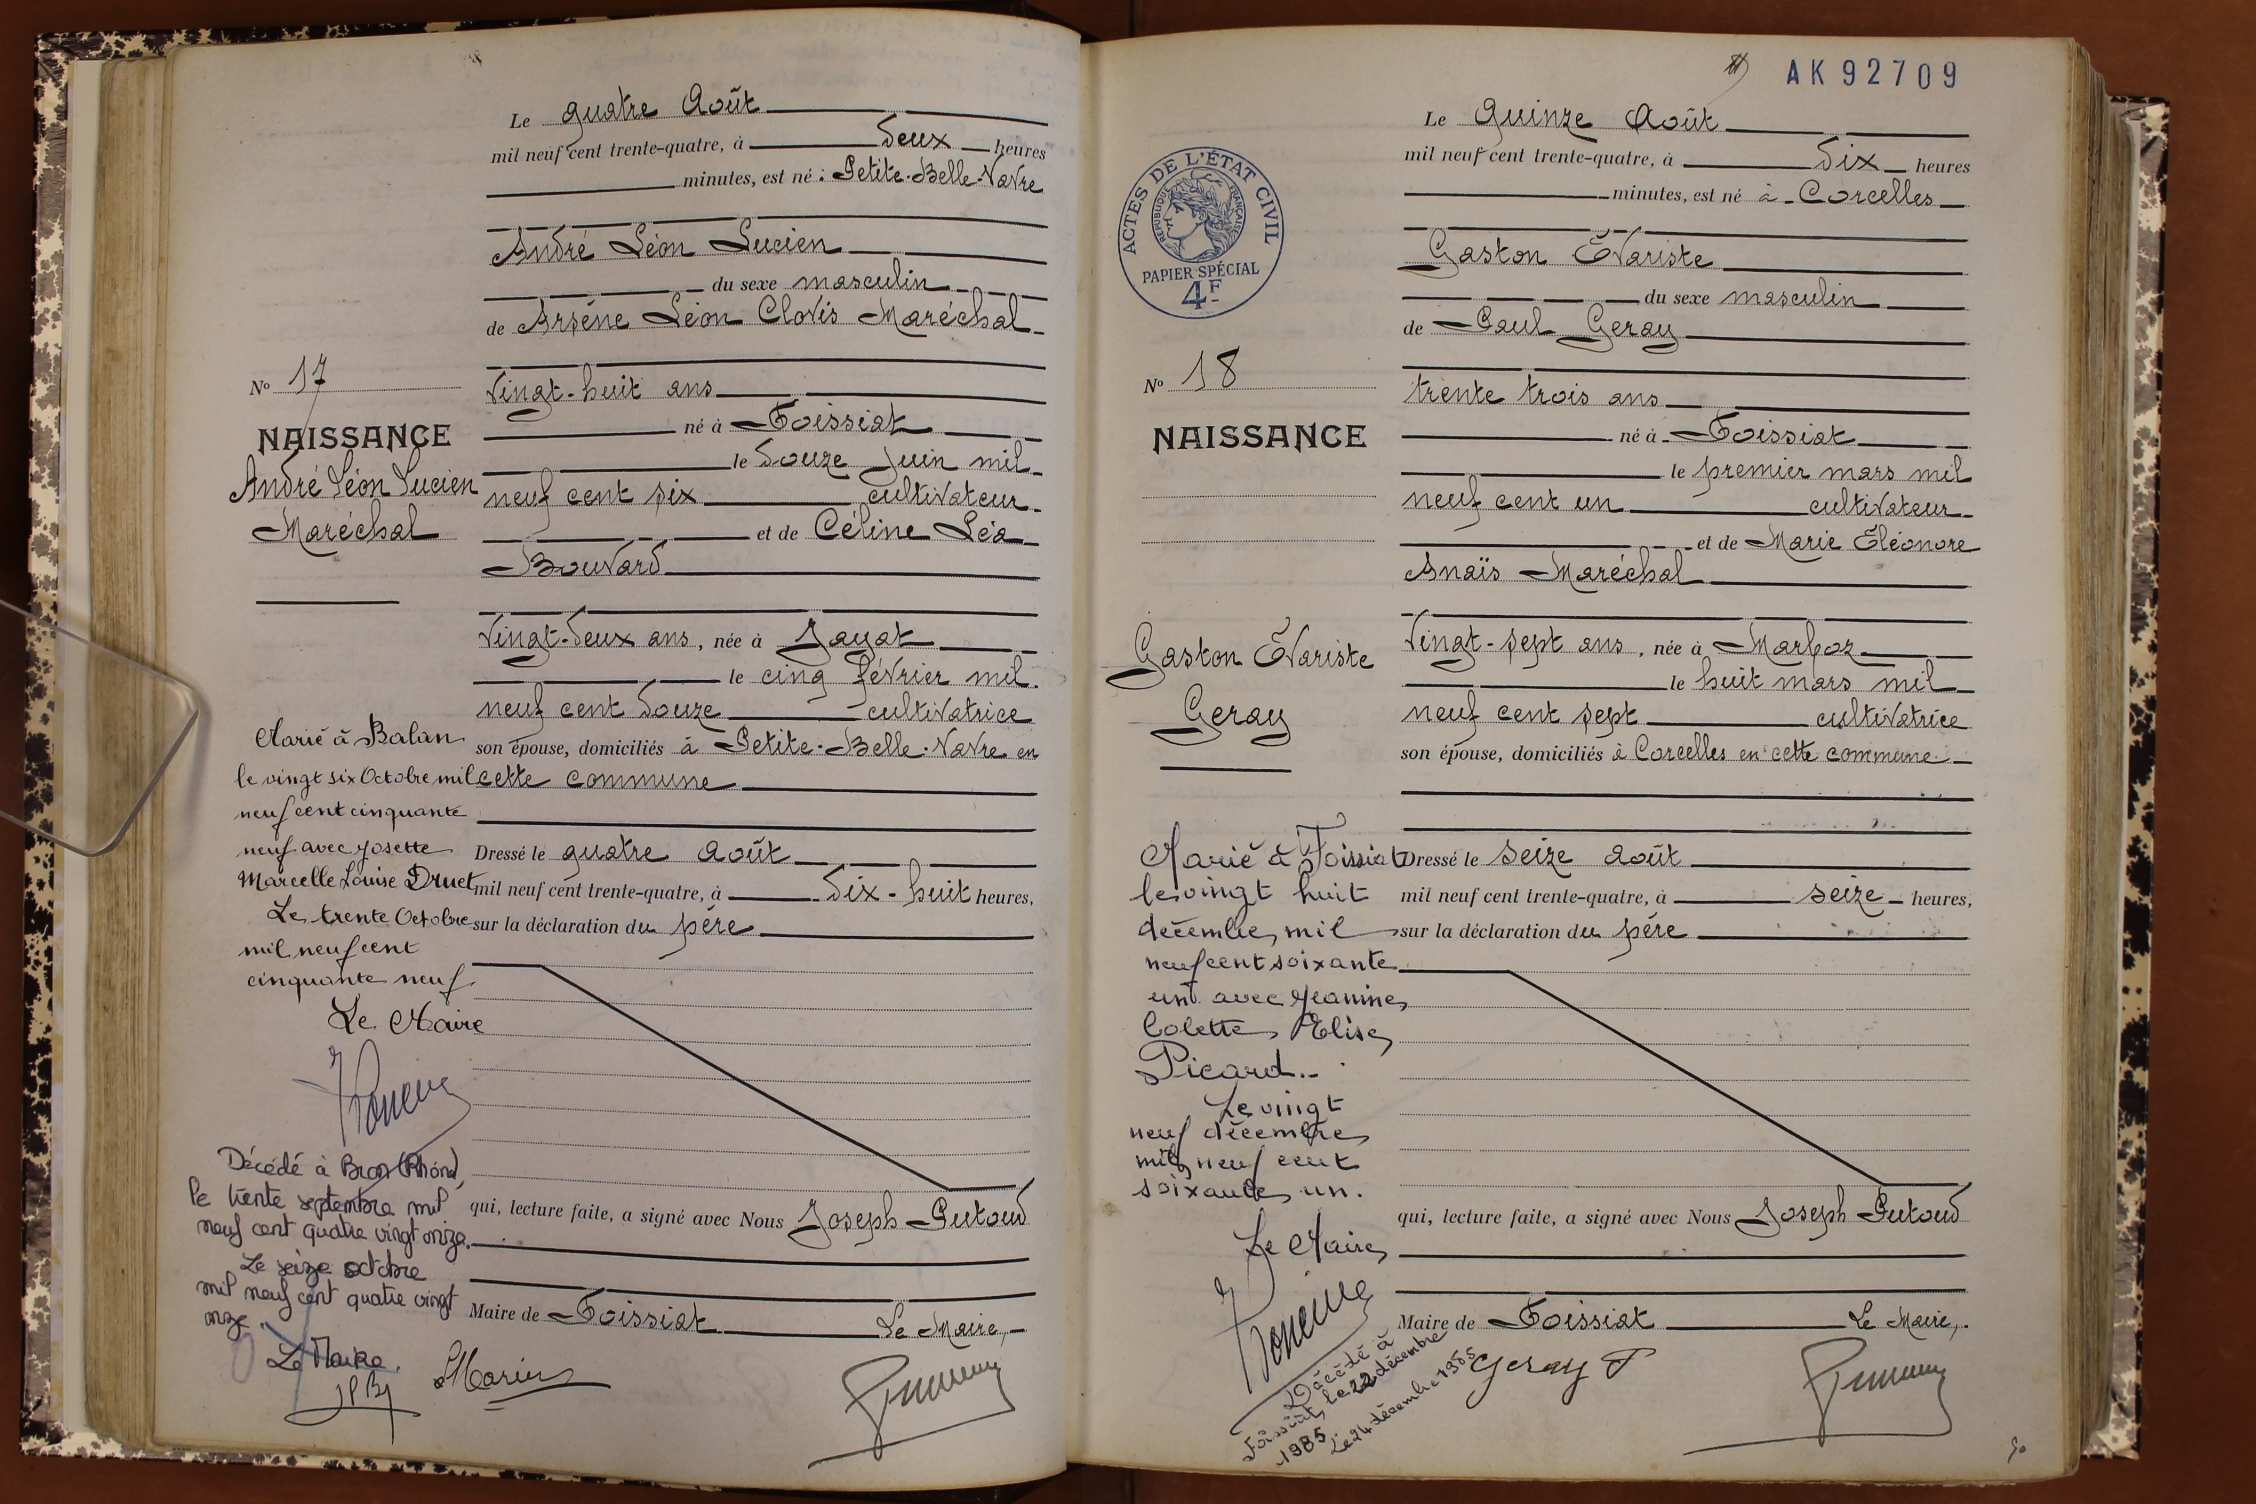 Le quatre Août
mil neuf cent trente-quatre, à deux heures
minutes, est né : Petite-Belle-Navre
André Léon Lucien
du sexe masculin
de Arsène Léon Clovis Maréchal
Vingt-huit ans
né à Foissiat
le douze Juin mil
neuf cent six cultivateur
et de Céline Léa
Bouvard
Vingt-deux ans, née à Jayat
le cinq février mil
neuf cent douze cultivatrice
son épouse, domiciliés à Petite-Belle-Navre en
cette commune
Dressé le quatre Août
mil neuf cent trente-quatre, à dix-huit heures,
sur la déclaration du père
qui, lecture faite, a signé avec Nous Joseph Putoud
Maire de Foissiat Le Maire,
No 17
NAISSANCE
André Léon Lucien
Maréchal
Marié à Balan
le vingt six Octobre mil
neuf cent cinquante
neuf avec Josette
Marcelle Louise Druet
Le trente Octobre
mil neuf cent
cinquante neuf
Le Maire
Décédé à Bron (Rhône)
le trente septembre mil
neuf cent quatre vingt onze.
Le seize octobre
mil neuf cent quatre vingt
onze
Le Maire.
AK 92709
Le Quinze Août
mil neuf cent trente-quatre, à dix heures
minutes, est né à Corcelles
Gaston Évariste
du sexe masculin
de Paul Geray
trente trois ans
né à Foissiat
le premier mars mil
neuf cent un cultivateur
et de Marie Éléonore
Anaïs Maréchal
Vingt-sept ans, née à Marboz
le huit mars mil
neuf cent sept cultivatrice
son épouse, domiciliés à Corcelles en cette commune
Dressé le seize Août
mil neuf cent trente-quatre, à seize heures,
sur la déclaration du père
qui, lecture faite, a signé avec Nous Joseph Putoud
Maire de Foissiat Le Maire,
Geray P
ACTES DE L'ÉTAT CIVIL
RÉPUBLIQUE FRANÇAISE
PAPIER SPÉCIAL
4F
No 18
NAISSANCE
Gaston Évariste
Geray
Marié à Foissiat
le vingt huit
décembre mil
neuf cent soixante
un avec Jeanine
Colette Elise
Picard.
Le vingt
neuf décembre
mil neuf cent
soixante un.
Le Maire
Décédé à
Foissiat, le 22 décembre
1985
Le 24 décembre 1985